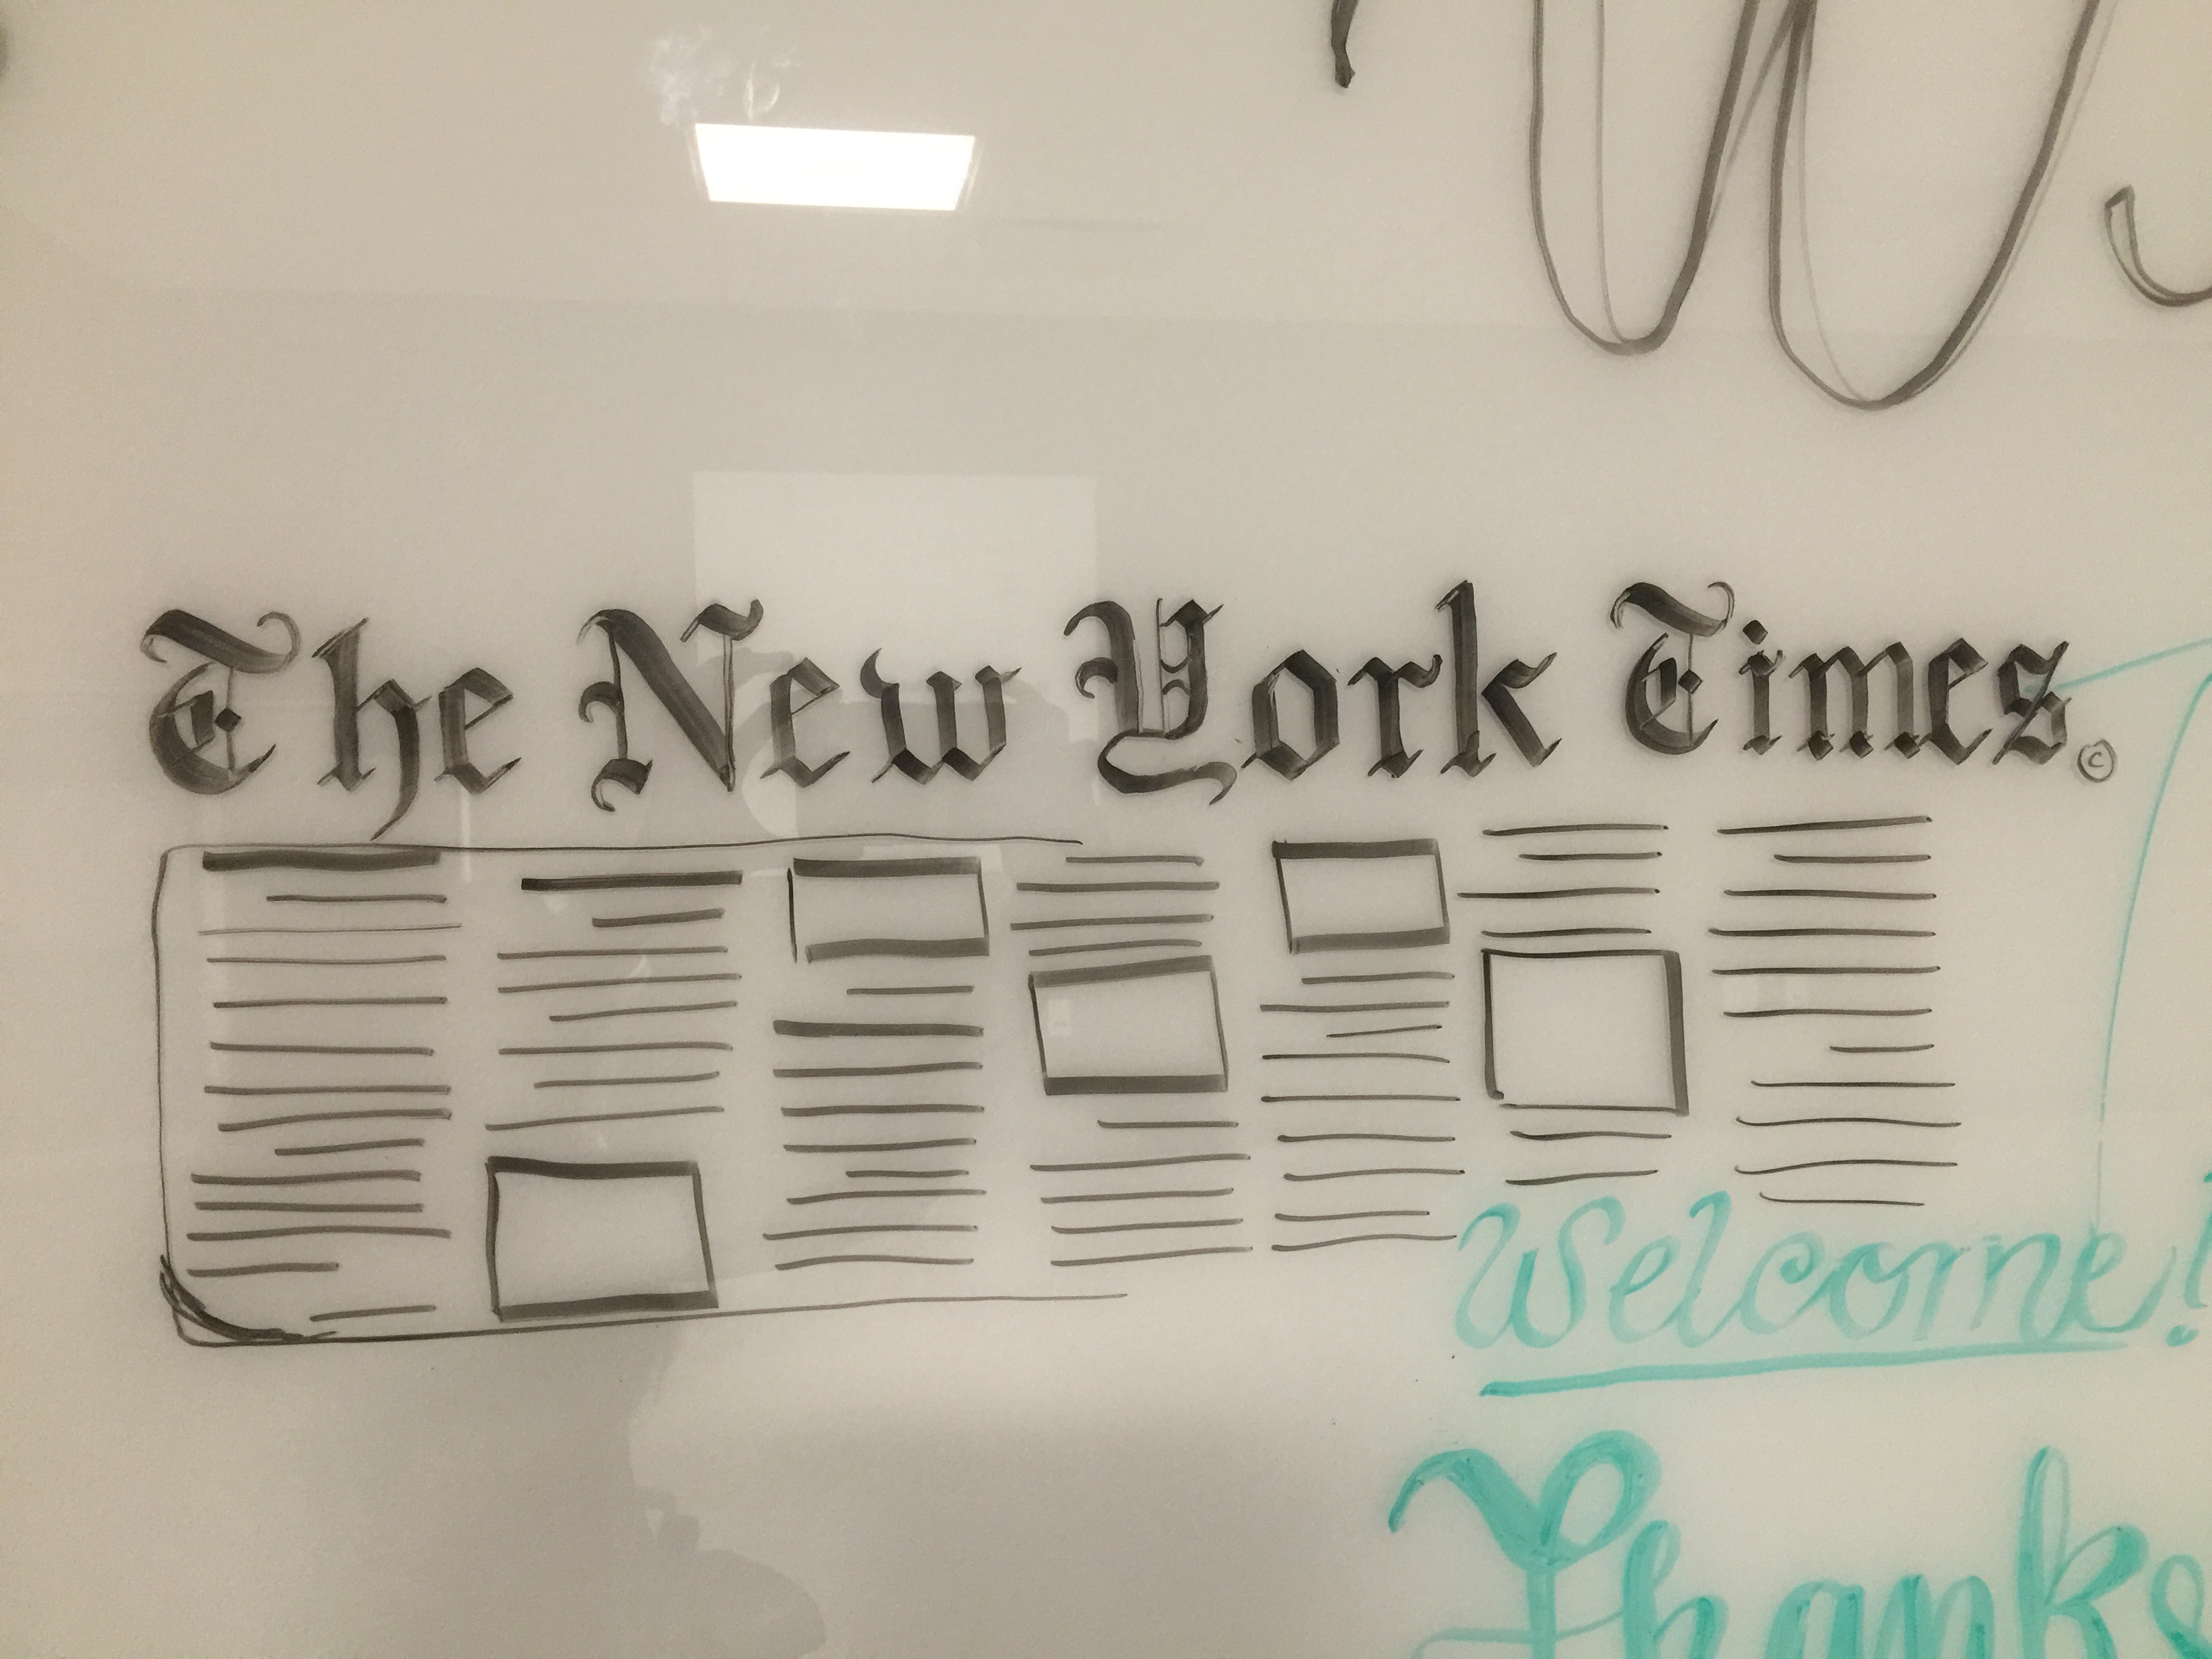 The New York Times ©
Welcome!
Thanks